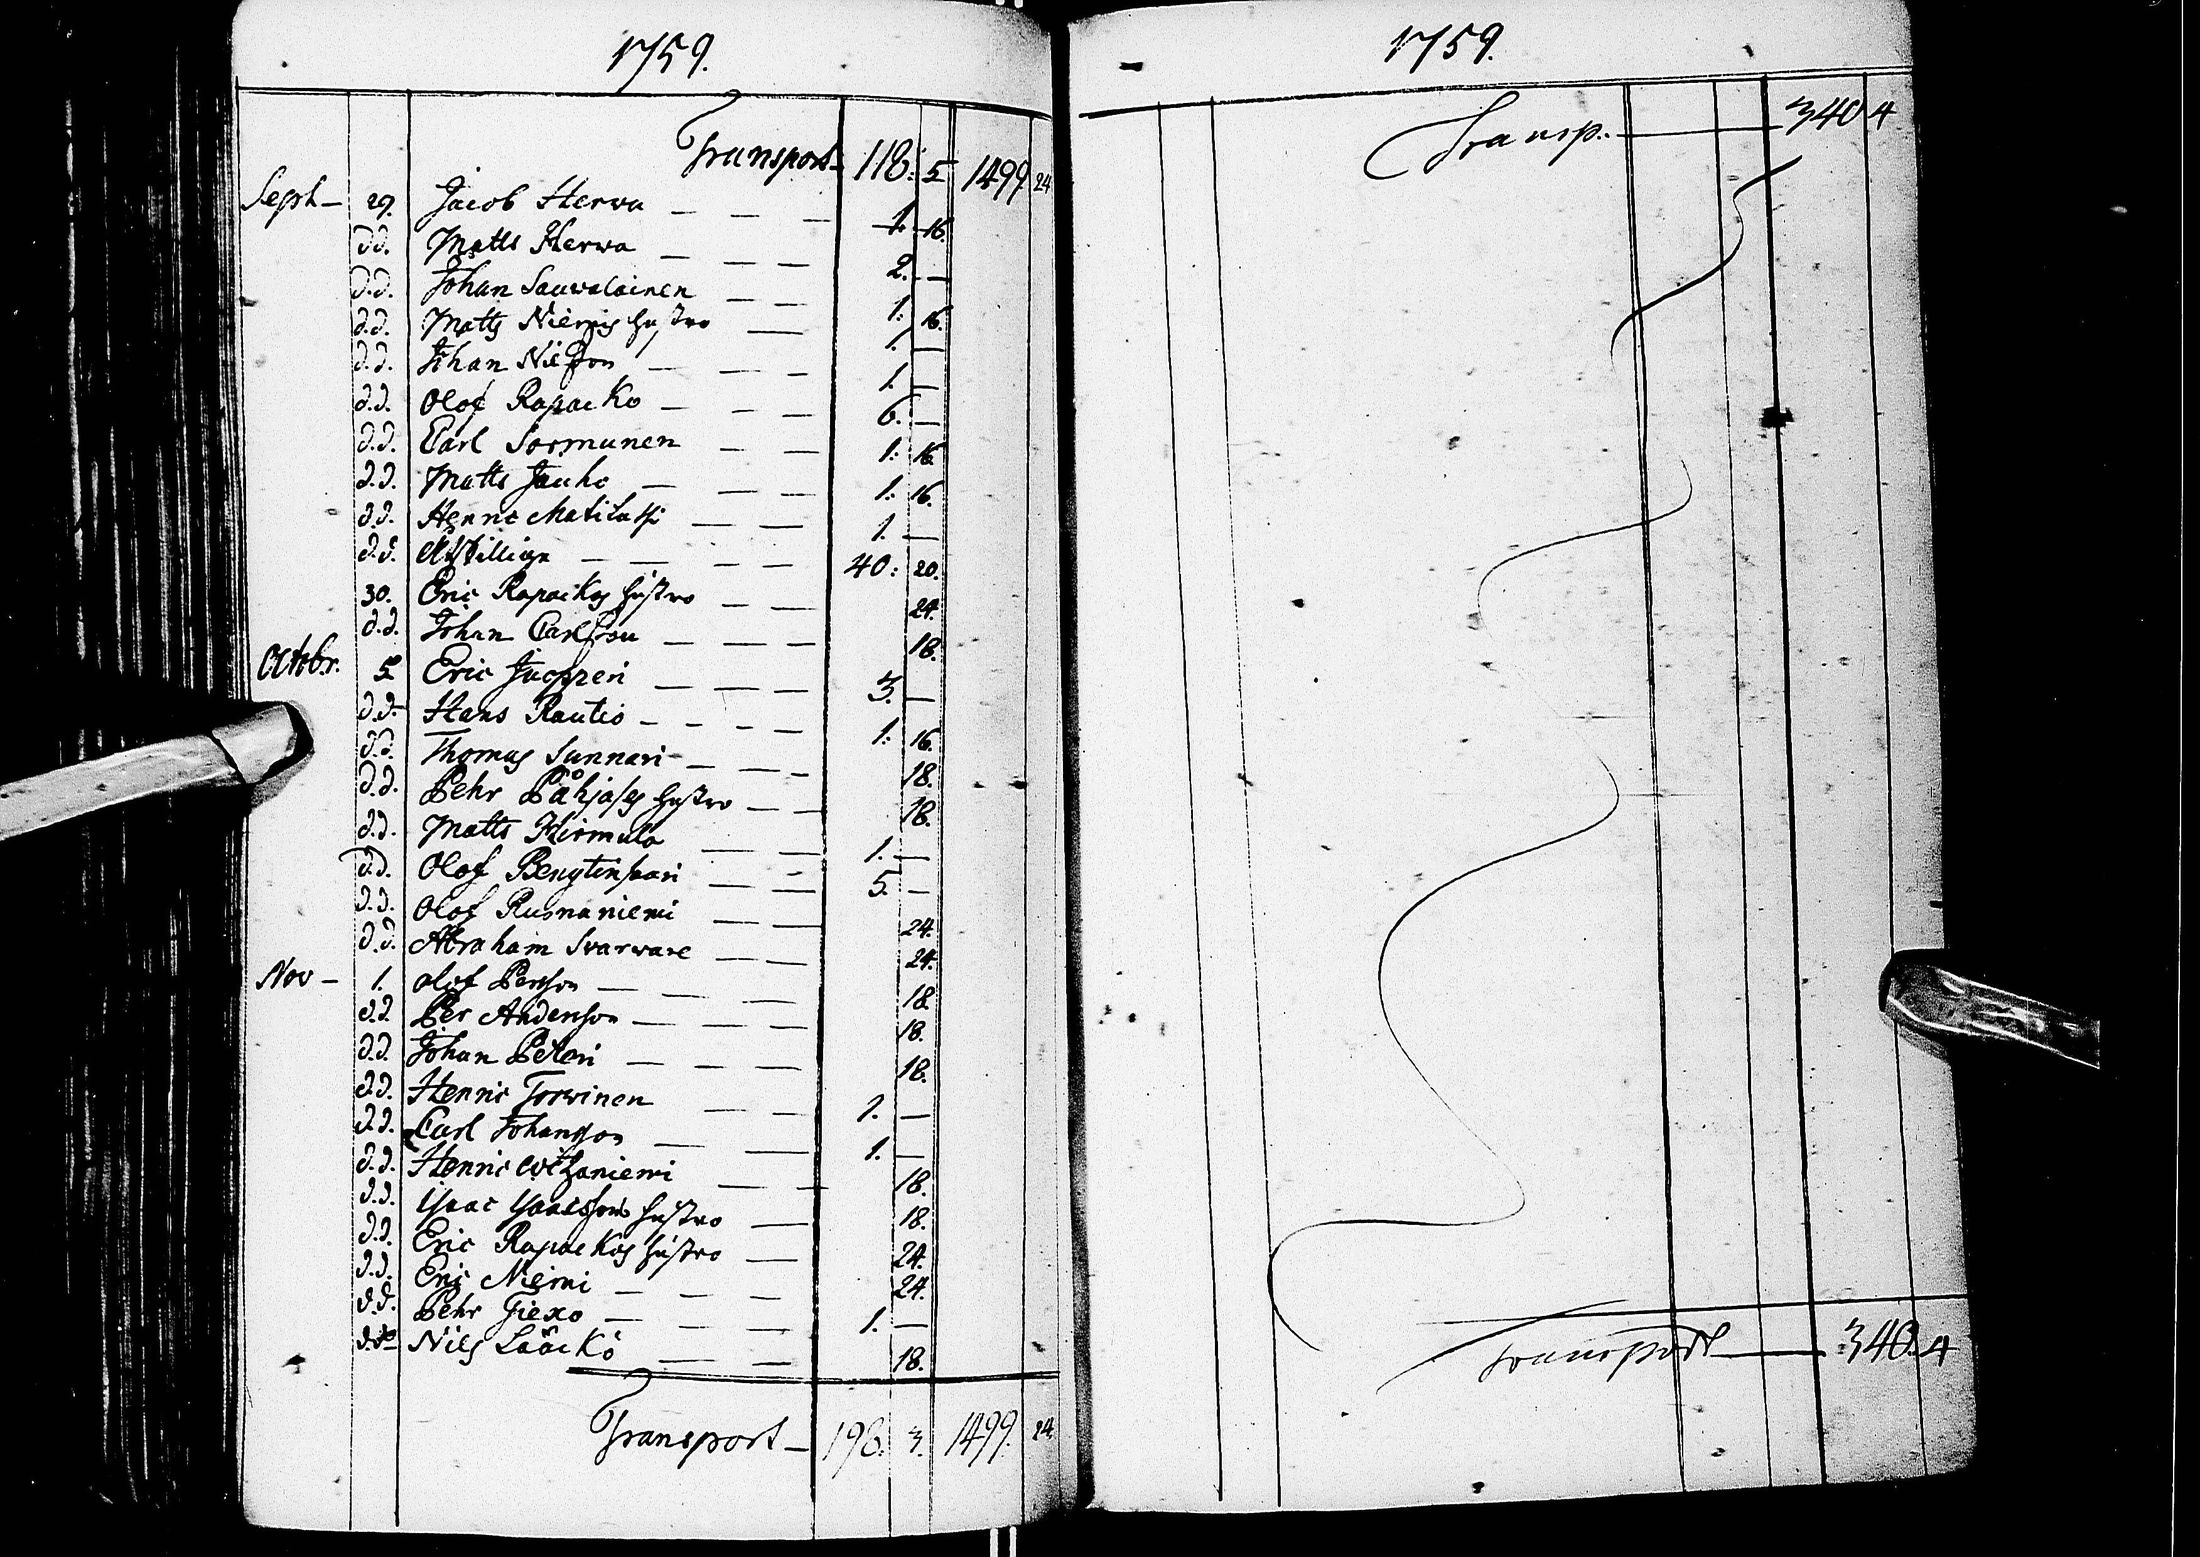 1759.
Transport 118: 5 1499 24
Sept 29. Jacob Herwa 1. 16.
d.d. Matts Herwa 2. —
d.d. Johan Sauwalainen 1. 16.
d.d. Matts Niemis hustro 1. —
d.d. Johan Nilsson 1. —
d.d. Olof Rapacko 6. —
d.d. Carl Sormunen 1: 16.
d.d. Matts Jauho 1: 16.
d.d. Henric Matilassi 1. —
d.d. 40: 20.
30. Eric Rapackos hustro 24.
d.d. Johan Carlsson 18.
Octobr. 5. Eric 3. —
d.d. Hans Rautio 1: 16.
d.d. Thomas Sunnari 18.
d.d. Pehr hustro 18.
d.d. Matts Kirmula 1. —
d.d. Olof 5. —
d.d. Olof Rusnaniemi 24.
d.d. Abraham Svarware 24.
Nov 1. Olof Persson 18.
d.d. Per Anderson 18.
d.d. Johan Peteri 18.
d.d. Henric Torvinen 1. —
d.d. Carl Johansson 1. —
d.d. Henric 18.
d.d. Isaac Isacssons hustro 18.
d.d. Eric Rapackos hustro 24.
d.d. Eric Niemi 24.
d.d. Pehr Giexo 1. —
d.to Nils Lååckö 18.
Transport 198. 3. 1499. 24
1759.
Transp. 340 4
Transport 340. 4